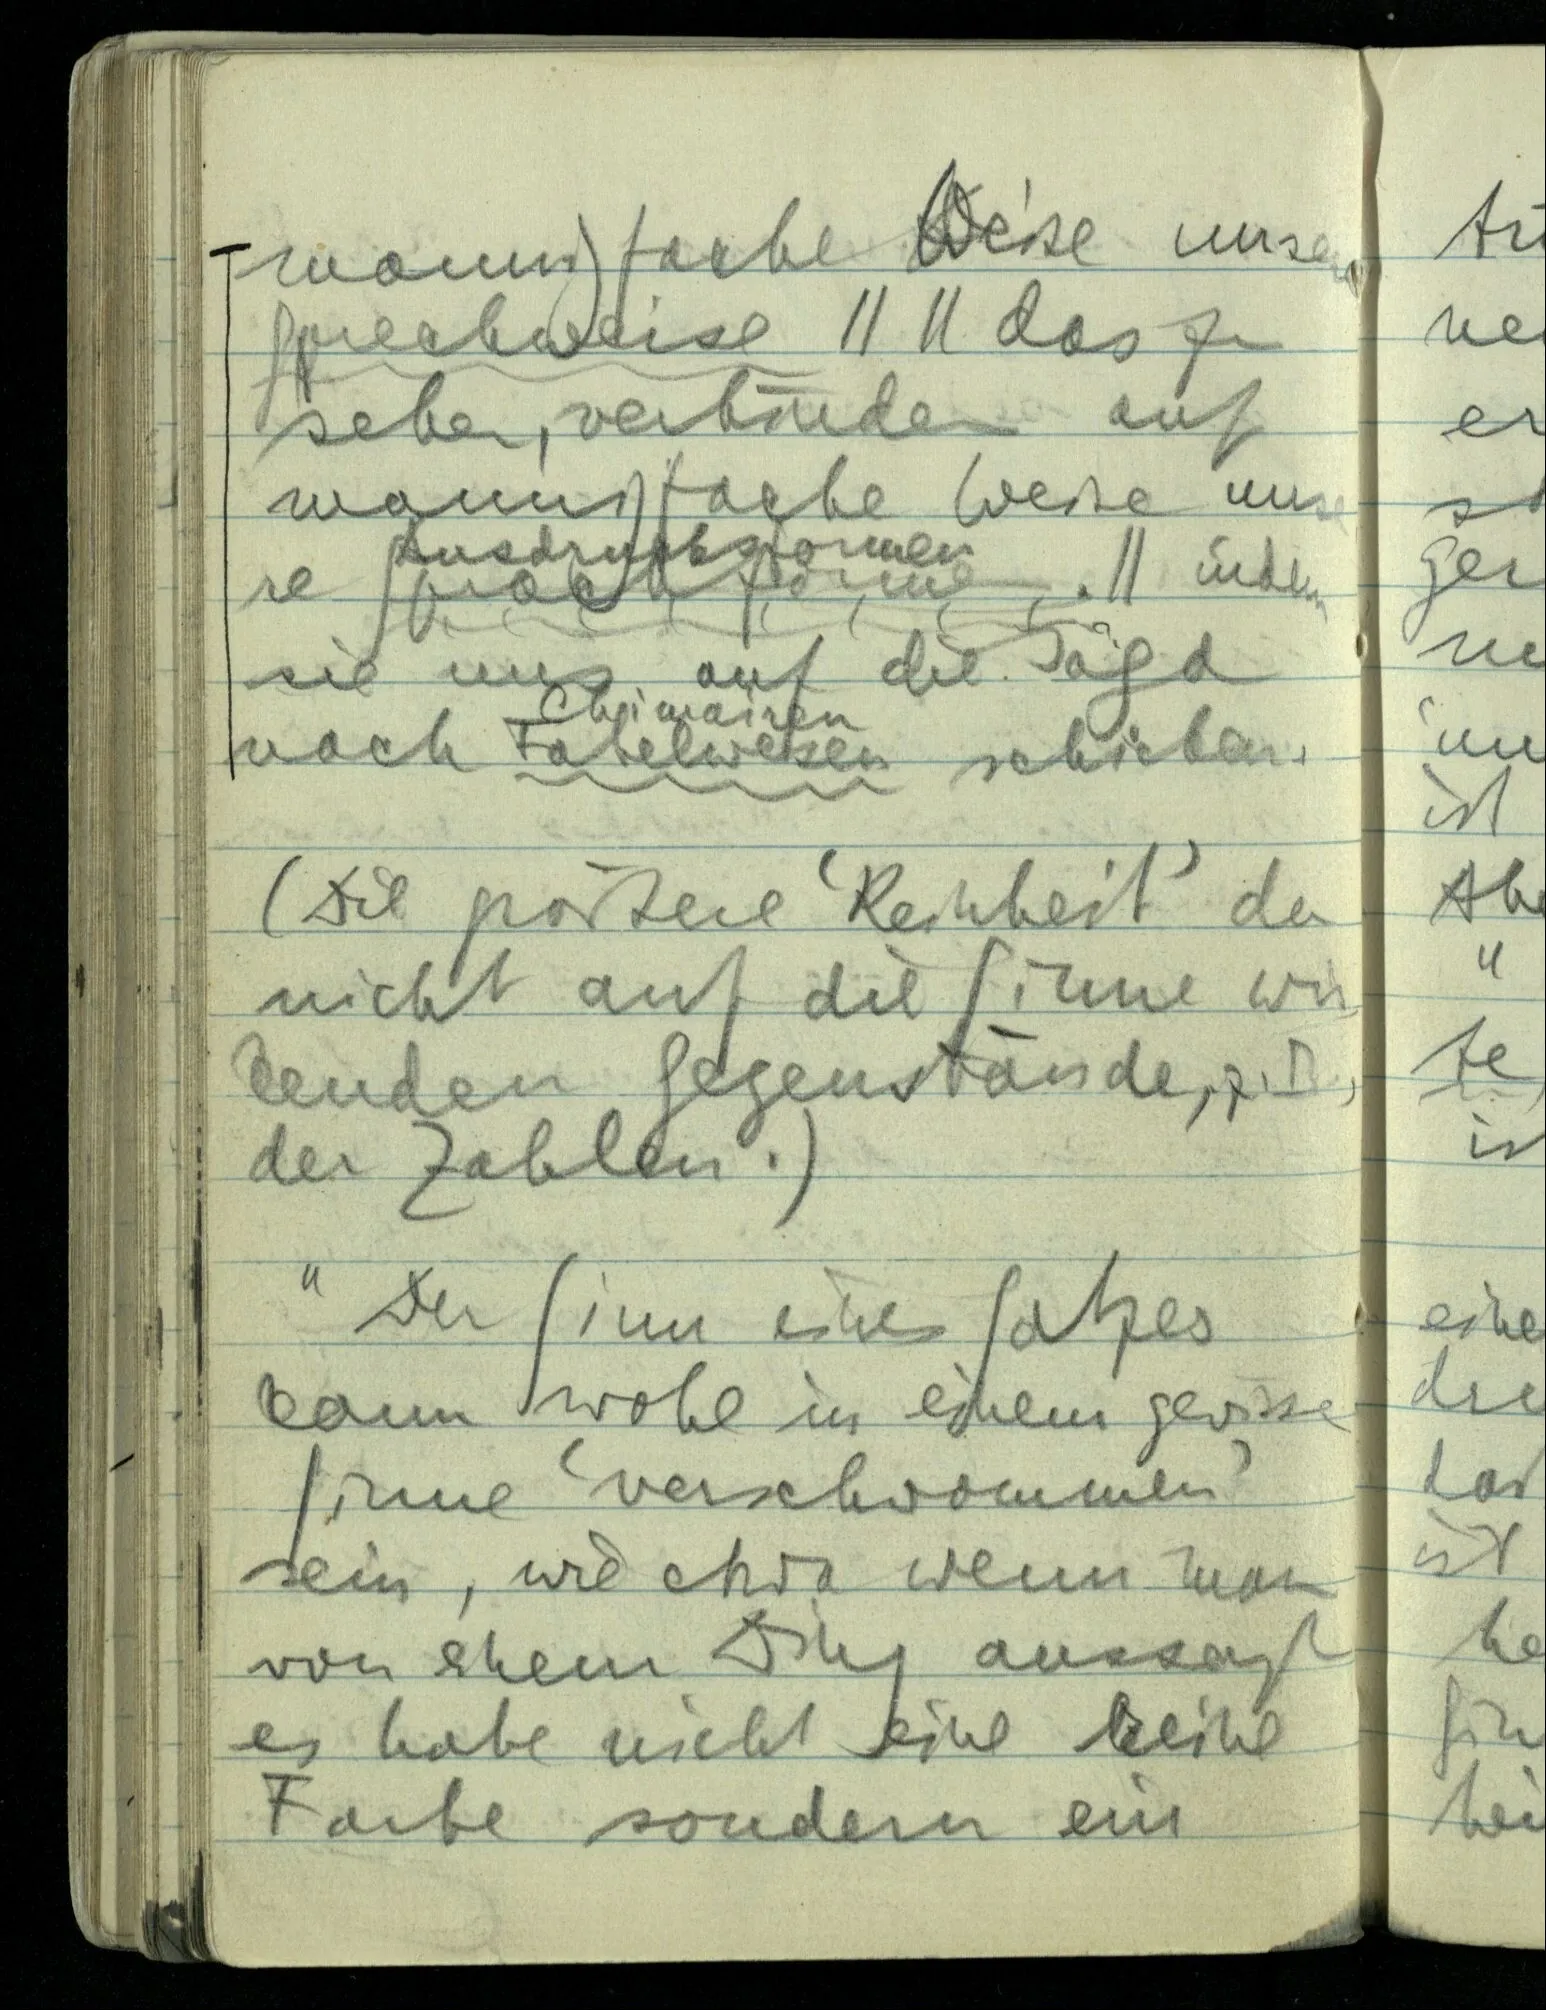 mannigfache Weise unsere
Sprechweise // // das zu
sehen, verbinden auf
mannigfache Weise unse
Ausdrucksformen
re Sprachform . // indem
sie uns auf die Jagd
Chimairen
nach Fabelwesen schicken.
(Die größere ‘Reinheit’ der
nicht auf die Sinne wir
kenden Gegenstände, z.B.,
der Zahlen.)
" Der Sinn eines Satzes
kann wohl in einem gewisse
Sinne ‘verschwommen’
sein, wie etwa wenn man
von einem Ding aussagt
es habe nicht eine reine
Farbe sondern ein
ist
"
te